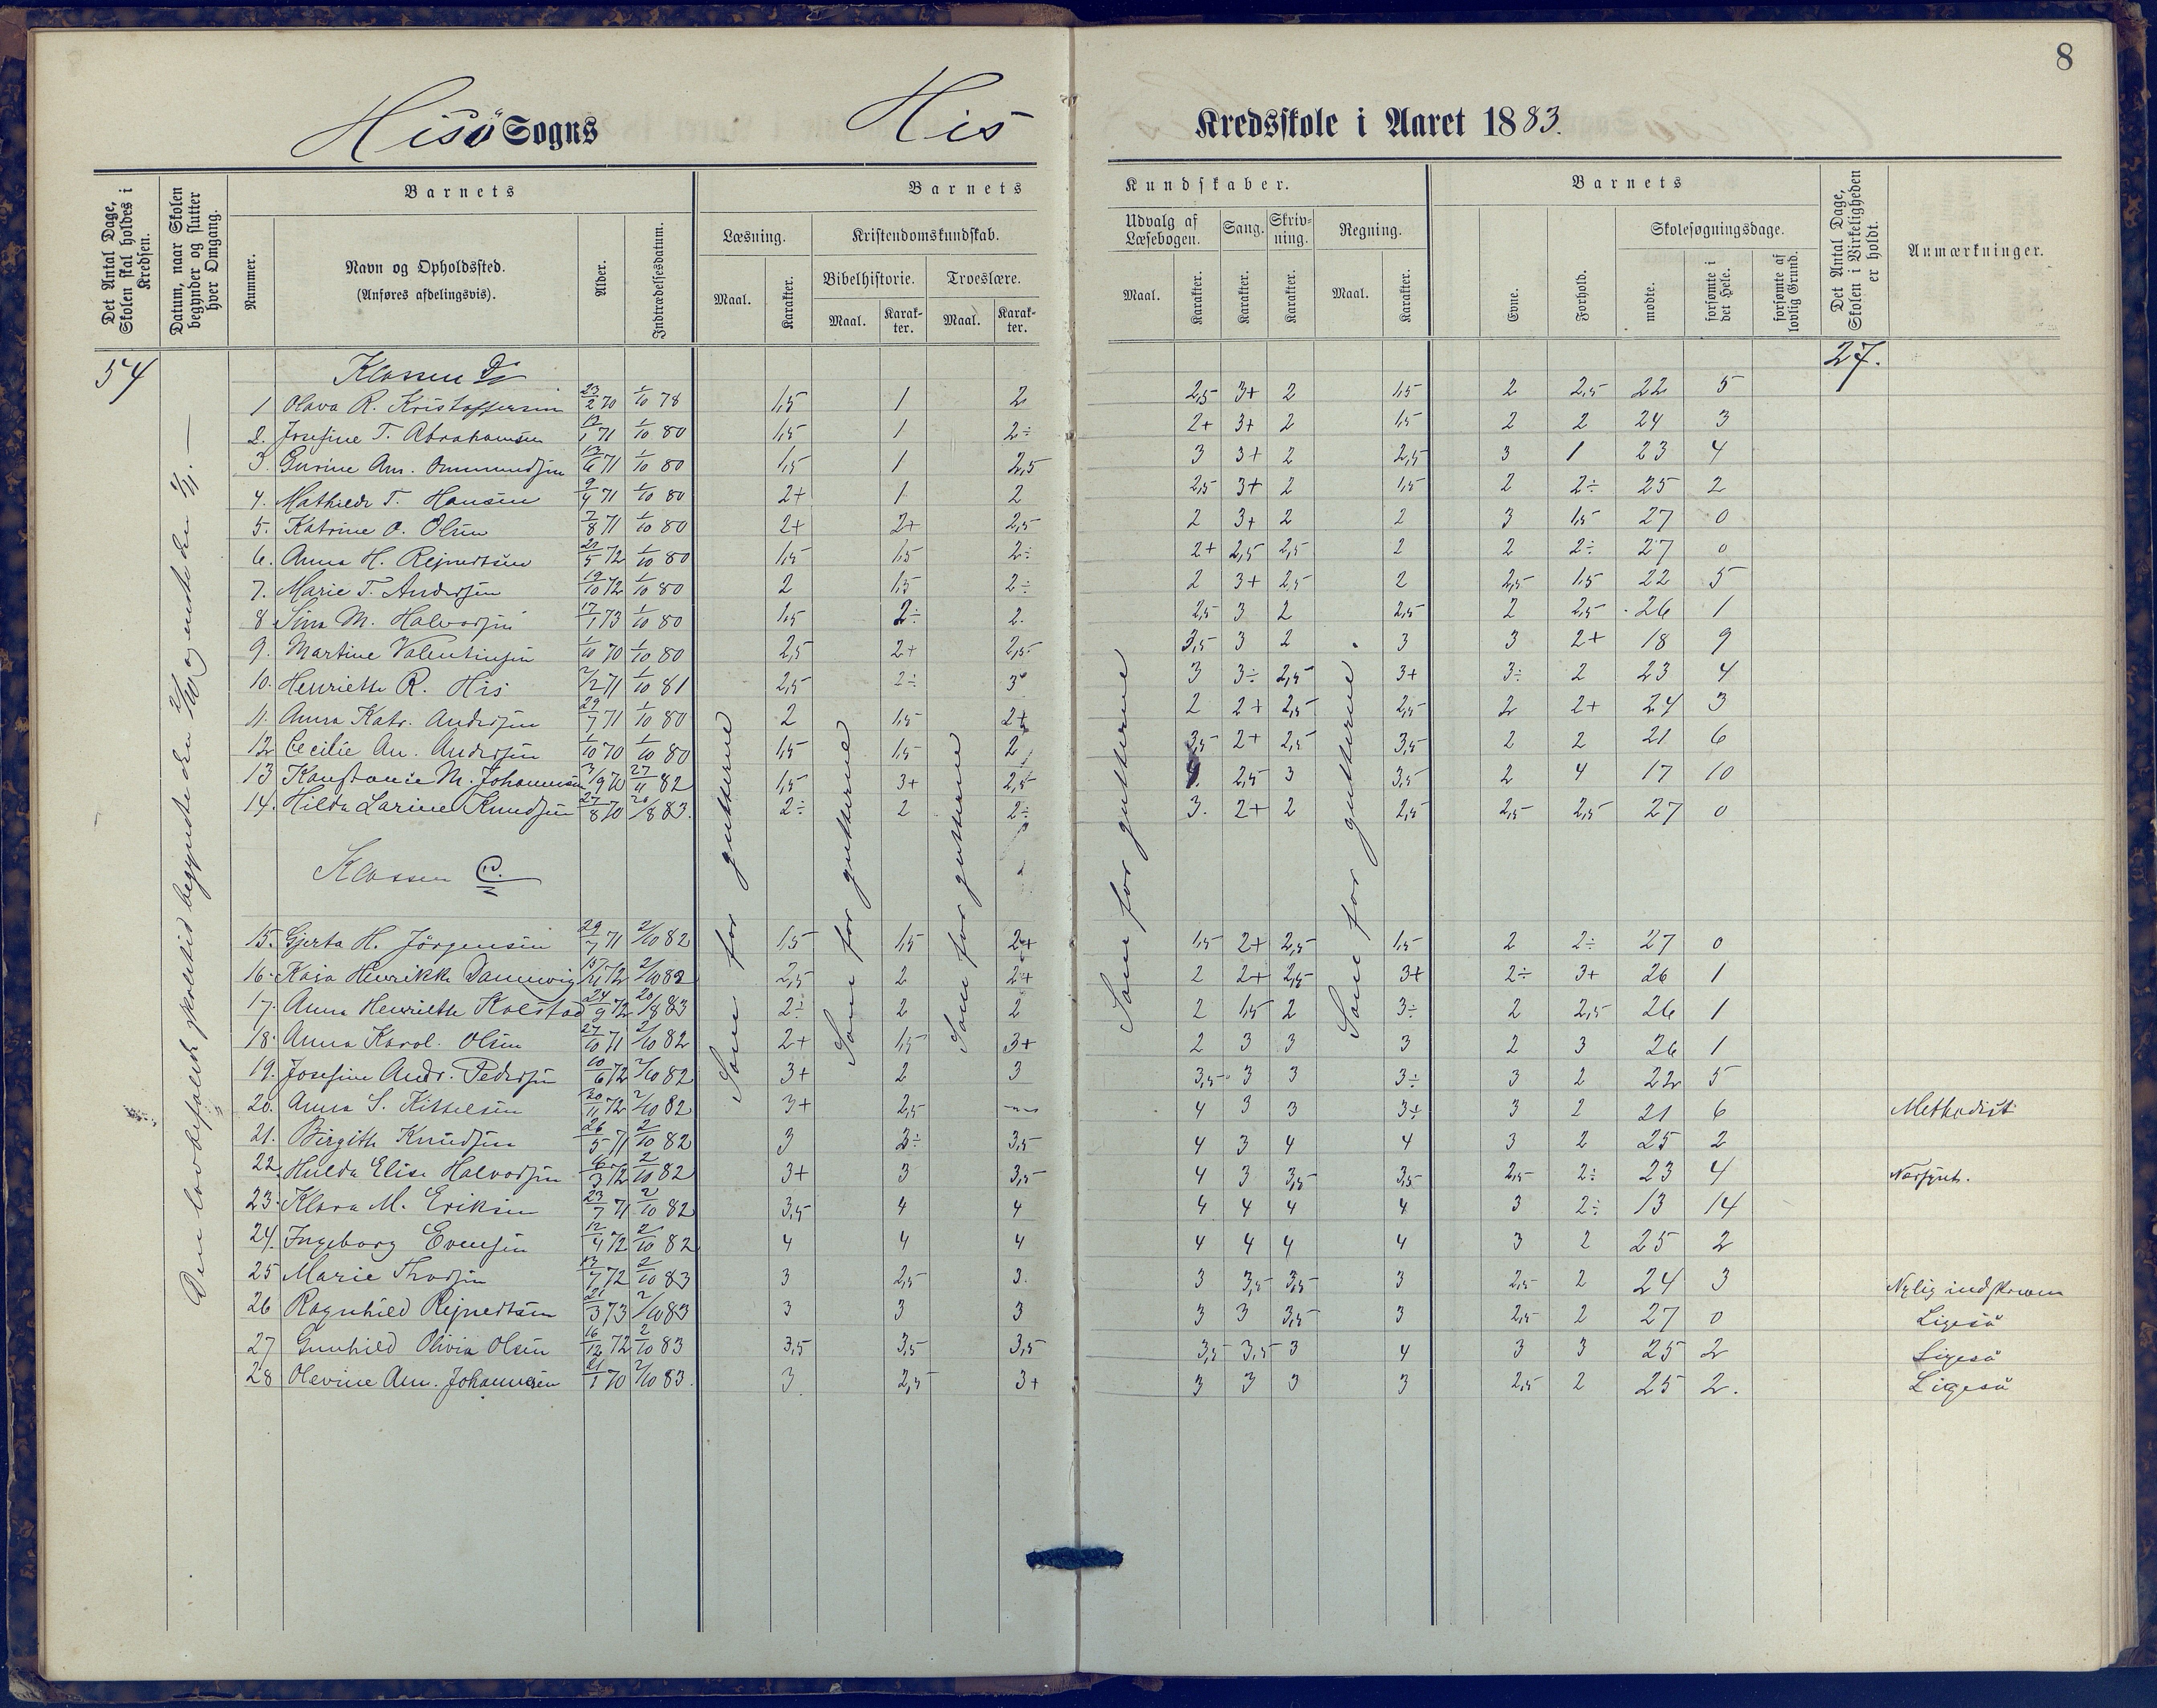 8
Hisö Sogns His Kredsskole i Aaret 1883.
Det Antal Dage, Skolen skal holdes i Kredsen.
Datum, naar Skolen begynder og slutter hver Omgang.
Barnets
Nummer.
Navn og Opholdssted.
(Anføres afdelingsvis).
Alder.
Indtrædelsesdatum.
Barnets Kundskaber.
Læsning.
Maal. Karakter.
Kristendomskundskab.
Bibelhistorie. Troeslære.
Maal. Karakter. Maal. Karakter.
Udvalg af Læsebogen.
Maal. Karakter.
Sang. Karakter.
Skrivning. Karakter.
Regning.
Maal. Karakter.
Barnets
Evne. Forhold.
Skolesøgningsdage.
mødte. forsømte i det Hele. forsømte af lovlig Grund.
Det Antal Dage, Skolen i Virkeligheden er holdt.
Anmærkninger.
54 27.
Den lovbefalede skoletid begyndte den 2/10 og endte den
Som for gutterne
Som for gutterne
Som for gutterne
Som for gutterne
Som for gutterne
Klassen D
1 Olava R. Kristoffersen 23/2 70 1/10 78 1,5 1 2 2,5 3+ 2 1,5 2 2,5 22 5
2. Josefine T. Abrahamsen 71 1/10 80 1,5 1 2÷ 2+ 3+ 2 1,5 2 2 24 3
3. Gurine An. Ommundsen 71 1/10 80 1,5 1 2,5 3 3+ 2 2,5 3 1 23 4
4. Mathilde T. Hansen 9/4 71 1/10 80 2+ 1 2 2,5 3+ 2 1,5 2 2÷ 25 2
5. Katrine O. Olsen 7/8 71 1/10 80 2+ 2+ 2,5 2 3+ 2 2 3 1,5 27 0
6. Anna H. Rejnertsen 21/5 72 1/10 80 1,5 1,5 2÷ 2+ 2,5 2,5 2 2 2÷ 27 0
7. Marie T. Andersen 19/10 72 1/10 80 2 1,5 2÷ 2 3+ 2,5 2 2,5 1,5 22 5
8 Sina M. Halvorsen 17/1 73 1/10 80 1,5 2÷ 2. 2,5 3 2 2,5 2 2,5 26 1
9. Martine Valentinsen 1/10 70 1/10 80 2,5 2+ 2,5 3,5 3 2 3 3 2+ 18 9
10. Henriette R. His 2/2 71 1/10 81 2,5 2÷ 3 3 3÷ 2,5 3+ 3÷ 2 23 4
11. Anna Katr. Andersen 29/7 71 1/10 80 2 1,5 2+ 2 2+ 2,5 2,5 2 2+ 24 3
12 Cecilie An. Andersen 1/10 70 1/10 80 1,5 1,5 2 3,5 2+ 2,5 3,5 2 2 21 6
13 Konstance M. Johannesen 27/11 82 1,5 3+ 2,5 4. 2,5 3 3,5 2 4 17 10
14. Hilda Larine Knudsen 27/8 70 20/8 83. 2÷ 2 2÷ 3. 2+ 2 2,5 2,5 2,5 27 0
Klassen C.
15. Gjerta H. Jörgensen 29/7 71 2/10 82 1,5 1,5 2+ 1,5 2+ 2,5 1,5 2 2÷ 27 0
16. Kaja Henrikke Dannevig 72 2/10 82 2,5 2 2+ 2 2+ 2,5 3+ 2÷ 3+ 26 1
17. Anna Henriette Kolstad 24/9 72 20/8 83 2÷ 2 2 2 1,5 2 3÷ 2 2,5 26 1
18. Anna Karol. Olsen 27/10 71 2/10 82 2+ 1,5 3+ 2 3 3 3 2 3 26 1
19. Josefine Andr. Pedersen 10/6 72 2/10 82 3+ 2 3 3,5 3 3 3÷ 3 2 22 5
20. Anna S. Kittelsen 20/11 72 2/10 82 3+ 2,5 4 3 3 3+ 3 2 21 6 Methodist
21. Birgitte Knudsen 26/5 71 2/10 82 3 3÷ 3,5 4 3 4 4 3 2 25 2
22. Hulda Elise Halvorsen 6/3 72 2/10 82 3+ 3 3,5 4 3 3,5 3,5 2,5 2÷ 23 4 Nærsynt.
23. Klara M. Eriksen 23/7 71 2/10 82 3,5 4 4 4 4 4 4 3 2÷ 13 14
24. Ingeborg Evensen 12/4 72 2/10 82 4 4 4 4 4 4 4 3 2 25 2
25 Marie Thorsen 72 2/10 83 3 2,5 3. 3 3,5 3,5 3 2,5 2 24 3 Nylig indskreven
26 Ragnhild Rejnertsen 21/3 73 2/10 83 3 3 3 3 3 3,5 3 2,5 2 27 0 Ligeså
27 Gunhild Olivia Olsen 16/12 72 2/10 83 3,5 3,5 3,5 3,5 3,5 3 4 3 3 25 2 Ligeså
28 Olevine Ann. Johannesen 21/1 70 2/10 83. 3 2,5 3+ 3 3 3 3 2,5 2 25 2. Ligeså